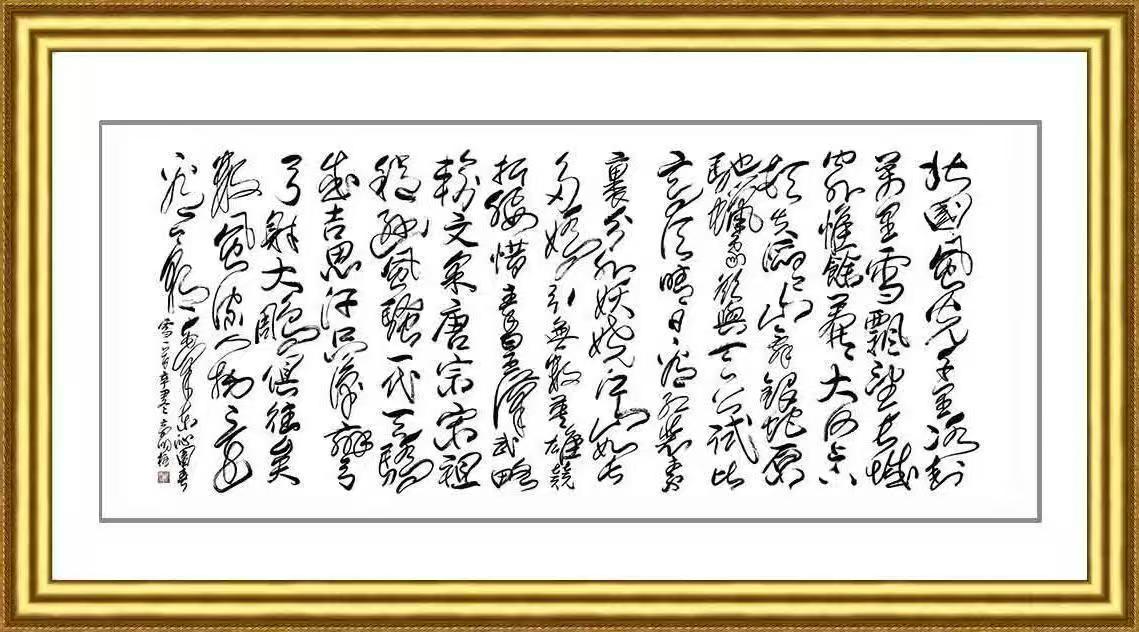 北國風光千里冰封
萬里雪飄望長城
內外惟餘莽莽大河上下
頓失滔滔山舞銀蛇原
馳蠟象欲與天公試比
高須晴日看紅裝素
裹分外妖嬈江山如此
多嬌引無數英雄競
折腰惜秦皇漢武略
輸文采唐宗宋祖
稍遜風騷一代天驕
成吉思汗只識彎
弓射大雕俱往矣
數風流人物還
看今朝 毛澤東沁園春
雪一首辛丑